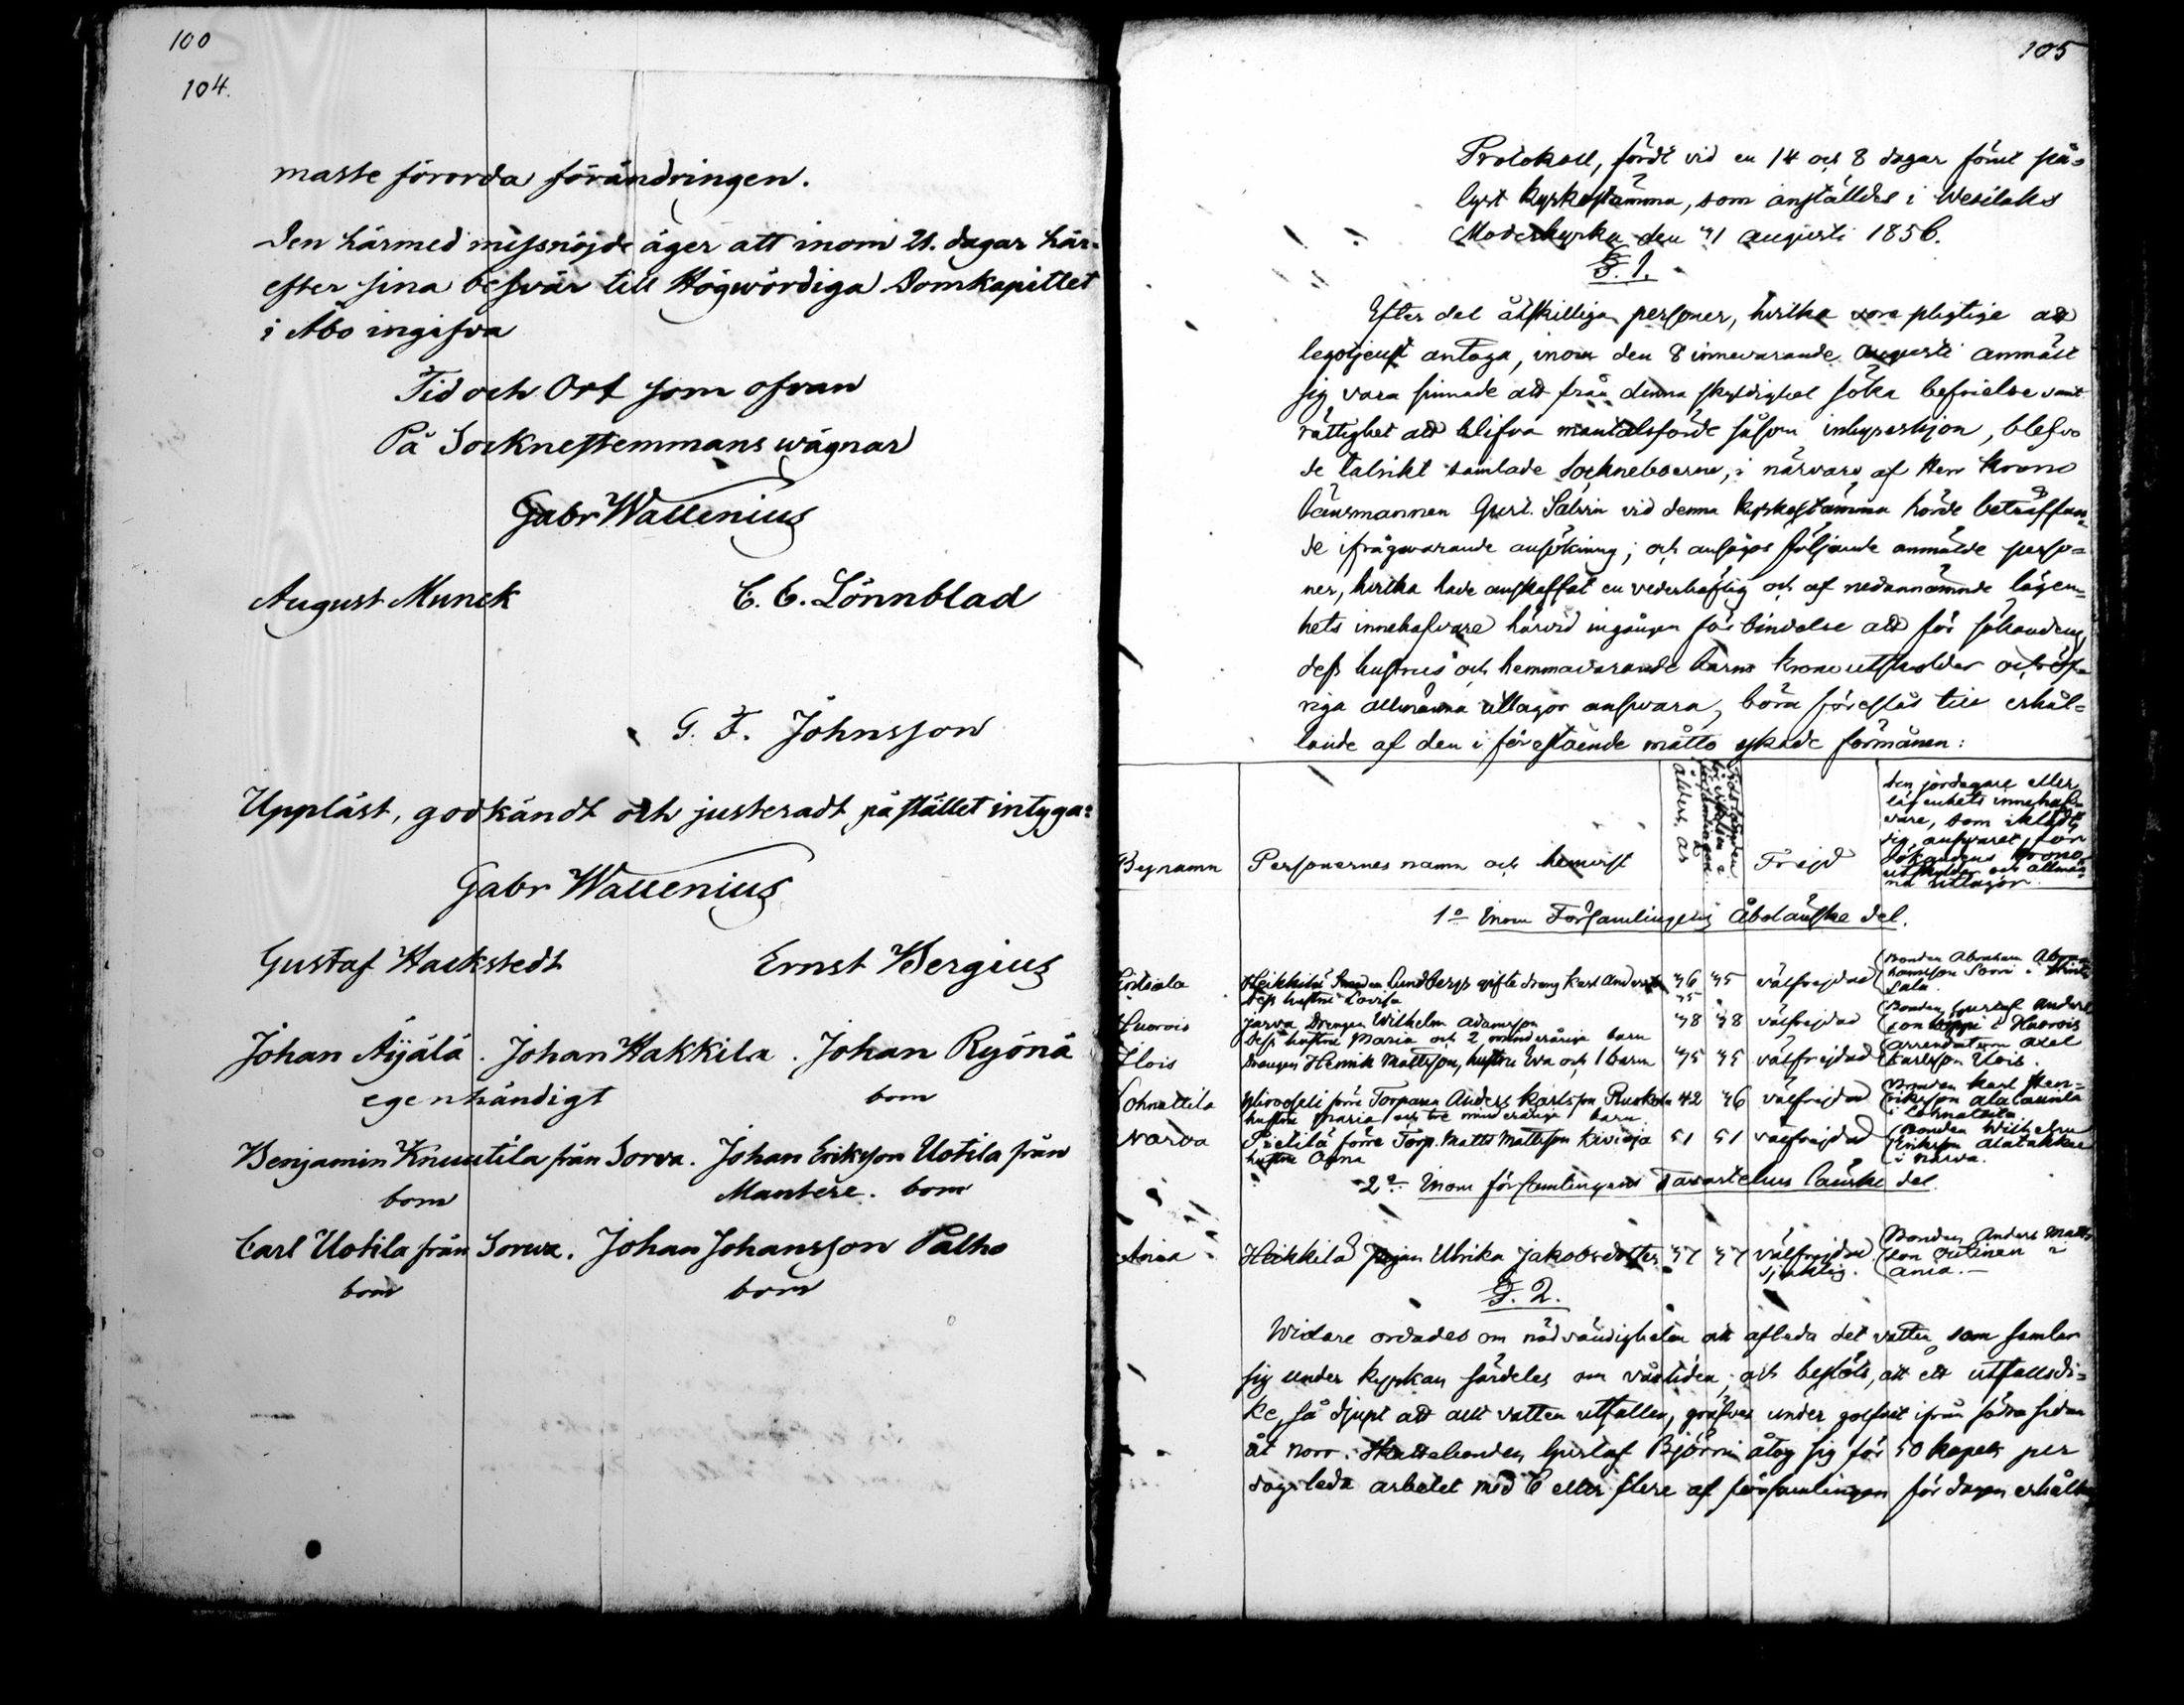 100
104.
maste förorda förändringen.
Den härmed missnöjde äger att inom 21. dagar här-
efter sina besvär till Högwördiga Domkapitlet
i Åbo ingifva
Tid och Ort som ofvan
På Socknestemmans wägnar
Gabr Wallenius
August Munck C. G. Lönnblad
G. F. Johnsson
Uppläst, godkändt och justeradt på stället intyga:
Gabr Wallenius
Gustaf Hackstedt Ernst Bergius
Johan Äijälä. Johan Hakkila. Johan Ryönä
egenhändigt bom
Benjamin Knuutila från Sorva. Johan Eriksson Uotila från
bom Mantere. bom
Carl Uotila från Sorwa. Johan Johansson Palho
bom bom
105
Protokoll, fördt vid en 14 och 8 dagar förut på-
lyst kyrkostämma, som anställdes i Wesilaks
Moderkyrka den augusti 1856.
§. 1.
Efter det åtskilliga personer, hvilka vore pligtige att
legotjenst antaga, inom den 8 innevarande Augusti anmält
sig vara sinnade att från denna skyldighet söka befrielse samt
rättighet att blifva mantalsförde såsom inhyseshjon, blefvo
de talrikt samlade Sockneboerne, i närvaro af Herr Krono
länsmannen Gust. Salvin vid denna kyrkostämma hörde beträffan-
de ifrågavarande ansökning; och ansågos följande anmälde perso-
ner, hvilka hade anskaffat en vederhäftig och af nedannämnde lägen-
hets innehafvare härvid ingången förbindelse att för sökandens,
dess hustrus och hemmavarande barns kronoutskylder och öf-
riga allmänna utlagor ansvara, böra föreslås till erhål-
lande af den i förestående måtto sökade förmånen:
Bynamn Personernes namn och hemvist ålders år Frejd
Den jordagare eller
lägenhets innehaf-
vare, som iklädt
sig ansvaret för
sökandens krono-
utskylder och allmän-
na utlagor.
1o Inom Församlingens Åboländske del.
Heikkilä Lundbergs gifte dräng Karl Anders 46 45 välfrejdad Bonden Abraham Abra-
hamsson Sorri i
Dess hustru Lovisa
Huorois Jarva Drengen Wilhelm Adamsson 48 48 välfrejdad Bonden Gustaf Anders
son i Huorois
Dess hustru Maria och 2 minderåriga barn
Ylois Drengen Henrik Mattsson, hustru Eva och 1 barn 45 45 välfrejdad Arrendatorn Axel
Karlsson Ylois.
Lohnattila Yliroopeli förre Torparen Anders Karlsson Ruokola 42 46 välfrejdad Bonden Karl Hen-
riksson Alalaurila
i Lohnattila
hustru Maria och tre minderåriga barn
Narva Pietilä förre Torp. Matts Mattsson Kivioja 51 51 välfrejdad Bonden Wilhelm
Eriksson Alatakkai
i Narva.
hustru Anna
2o Inom församlingens Tavastehus länske del.
Ania Heikkilä Pigan Ulrika Jakobsdotter 47 47 välfrejdad Bonden Anders Matts
sjuklig. son Outinen i
Ania.
§. 2.
Widare ordades om nödvändigheten att afleda det vatten som samlar
sig under kyrkan särdeles om vårtiden, och beslöts, att ett utfallsdi-
ke, så djupt att allt vatten utfaller, gräfves under golfvet ifrån södra sidan
åt norr. Skattebonden Gustaf Björni åtog sig för 50 kopek per
dag leda arbetet med 6 eller flere af församlingen för dagen erhållna